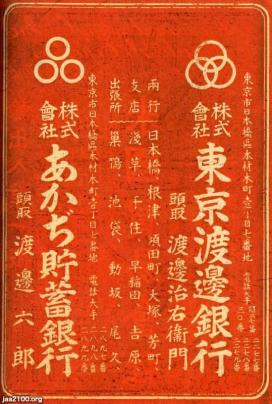 東京市日本橋區本材木町壱丁目七番地
株式會社 東京渡邊銀行
頭取 渡邊治右衛門
兩行 日本橋、根津、須田町、大塚、芳町、
支店 淺草、千住、早稲田、吉原、
出張所 巢鴨、池袋、動坂、尾久、
東京市日本橋區本材木町壱丁目七番地 電話大手
株式會社 あかぢ貯蓄銀行
頭取 渡邊六郎
jaa2100.org